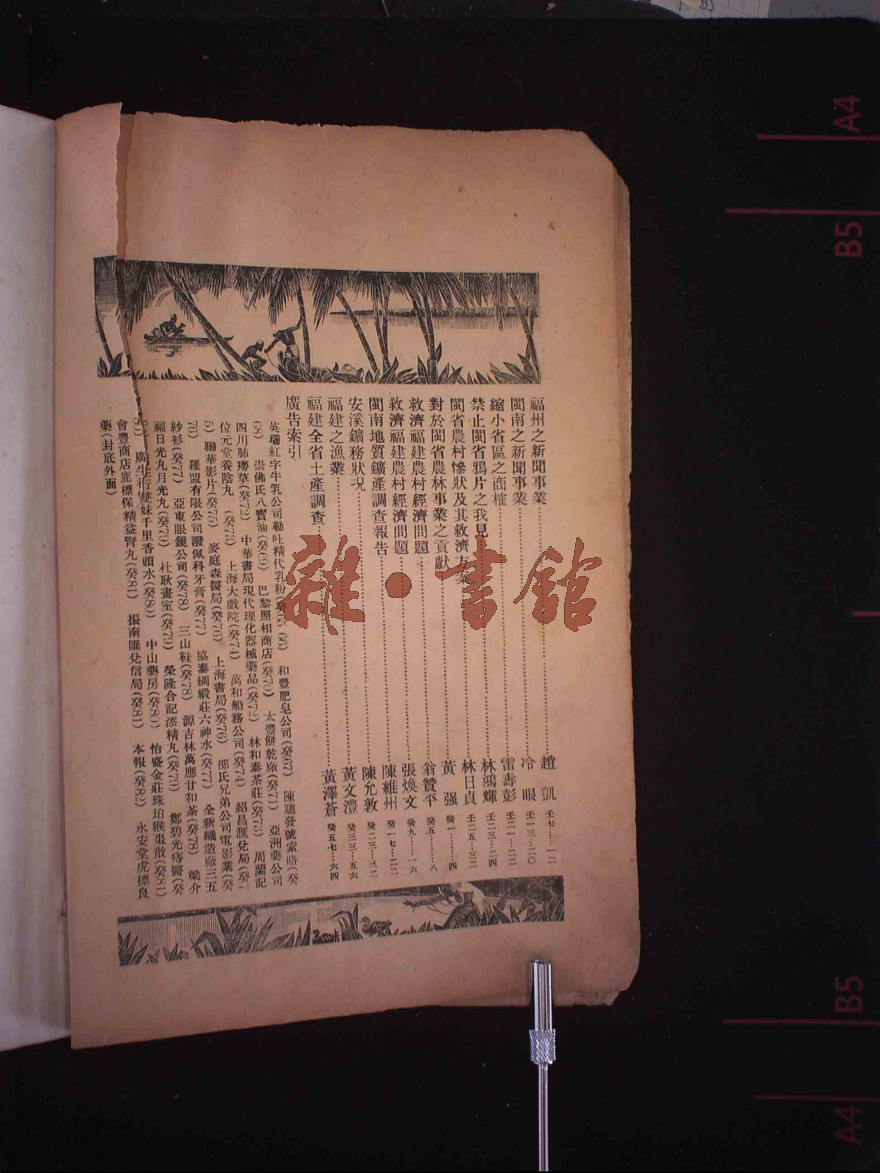 福州之新聞事業……趙 凱 壬七…一二
閩南之新聞事業……冷 眼 壬一三…二〇
縮小省區之商榷……雷壽彭 壬二一…二二
禁止閩省鴉片之我見……林鴻輝 壬二三…二四
閩省農村慘狀及其救濟方案……林日貞 壬二五…三二
對於閩省農林事業之貢獻……黃 强 癸一…四
救濟福建農村經濟問題……翁贊平 癸五…八
救濟福建農村經濟問題……張煥文 癸九…一六
閩南地質鑛產調查報告……陳維州 癸一七…二二
安溪鑛務狀况……陳允敦 癸二三…三二
福建之漁業……黃文澧 癸三三…五六
福建全省土產調查……黃澤蒼 癸五七…六四
廣告索引
英瑞紅字牛乳公司勒吐精代乳粉(癸65)(66) 和豐肥皂公司(癸67) 陳聰發號索賂(癸
68) 崇佛氏八寶油(癸69) 巴黎照相商店(癸70) 太豐餅乾廠(癸71) 亞洲藥公司
四川肺癆草(癸72) 中華書局現代理化器械藥品(癸72) 林和泰茶莊(癸73) 周蘭記
位元堂養陰丸(癸73) 上海大戲院(癸74) 萬和船務公司(癸74) 紹昌匯兌局(癸7
5) 聯華影片(癸75) 麥庭森醫局(癸76) 上海書局(癸76) 邵氏兄弟公司電影業(癸
76) 羅盟有限公司潑佩科牙膏(癸77) 協泰綢緞莊六神水(癸77) 全新織造廠三五
紗衫(癸77) 亞東眼鏡公司(癸78) 三山鞋(癸78) 源吉林萬應甘和茶(癸78) 梁介
福日光丸月光丸(癸79) 杜耿畫室(癸79) 榮隆合記漲精丸(癸79) 鄭碧光痔醫(癸
80) 廣生行雙妹千里香頭水(癸80) 中山藥房(癸81) 怡盛金莊珠珀猴棗散(癸81)
會豐商店鹿標保精益腎丸(癸81) 振南匯兌信局(癸81) 本報(癸82) 永安堂虎標良
藥(封底外面)
雜·書館
A4
B5
B5
A4